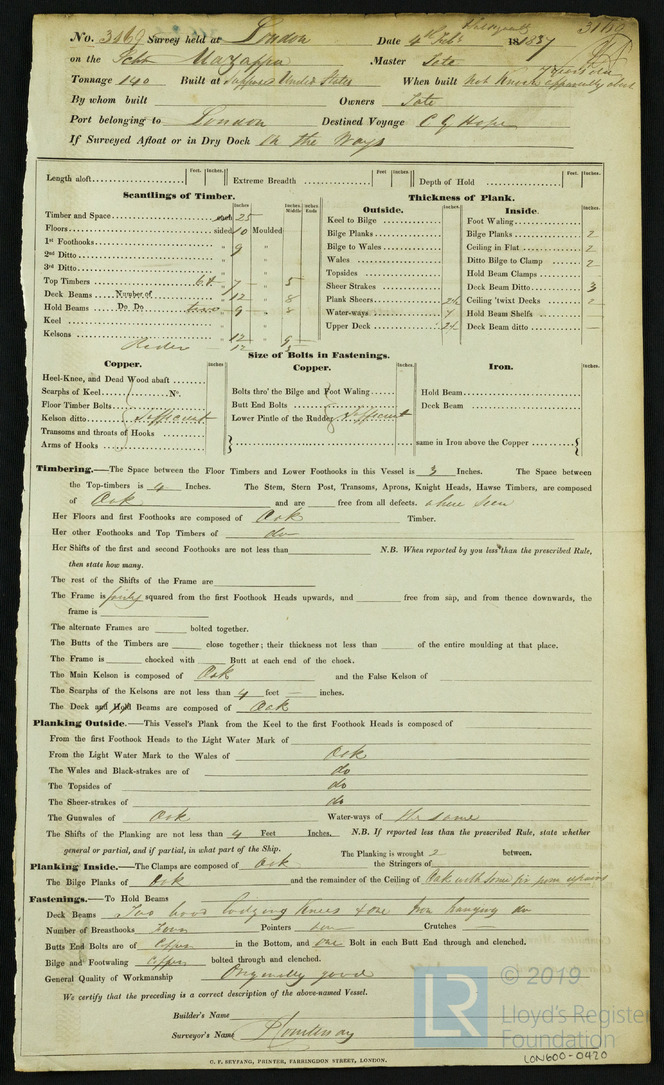 No. 3169 Survey held at London Date 4th Feb 1837
on the Schr Mazappa Master Tate
Tonnage 140 Built at Supposed United States When built not Known apparently about 7 years old
By whom built Owners Tate
Port belonging to London Destined Voyage C G Hope
If Surveyed Afloat or in Dry Dock On the Ways
Length aloft Feet. Inches. Extreme Breadth Feet. Inches. Depth of Hold Feet. Inches.
Scantlings of Timber.
Inches Inches. Middle Inches. Ends
Timber and Space each 25
Floors sided 10 Moulded
1st Foothooks 9 "
2nd Ditto "
3rd Ditto "
Top Timbers 7 " 5
Deck Beams Number of 12 " 8
Hold Beams Do. Do. two 9 " 8
Keel "
Kelsons 12 " 9
Rider 12
Thickness of Plank.
Outside.
Inches
Keel to Bilge
Bilge Planks
Bilge to Wales
Wales
Topsides
Sheer Strakes
Plank Sheers 2½
Water-ways 4
Upper Deck 2½
Inside.
Inches.
Foot Waling
Bilge Planks 2
Ceiling in Flat 2
Ditto Bilge to Clamp 2
Hold Beam Clamps
Deck Beam Ditto 3
Ceiling 'twixt Decks 2
Hold Beam Shelfs
Deck Beam ditto —
Size of Bolts in Fastenings.
Copper. Inches
Heel-Knee, and Dead Wood abaft
Scarphs of Keel No.
Floor Timber Bolts
Kelson ditto Sufficient
Transoms and throats of Hooks
Arms of Hooks
Copper. Inches.
Bolts thro' the Bilge and Foot Waling
Butt End Bolts
Lower Pintle of the Rudder Sufficient
Iron. Inches.
Hold Beam
Deck Beam
same in Iron above the Copper
Timbering.—The Space between the Floor Timbers and Lower Foothooks in this Vessel is 3 Inches. The Space between
the Top-timbers is 4 Inches. The Stem, Stern Post, Transoms, Aprons, Knight Heads, Hawse Timbers, are composed
of Oak and are free from all defects. where seen
Her Floors and first Foothooks are composed of Oak Timber.
Her other Foothooks and Top Timbers of do
Her Shifts of the first and second Foothooks are not less than N.B. When reported by you less than the prescribed Rule,
then state how many.
The rest of the Shifts of the Frame are
The Frame is fairly squared from the first Foothook Heads upwards, and free from sap, and from thence downwards, the
frame is
The alternate Frames are bolted together.
The Butts of the Timbers are close together; their thickness not less than of the entire moulding at that place.
The Frame is chocked with Butt at each end of the chock.
The Main Kelson is composed of Oak and the False Kelson of
The Scarphs of the Kelsons are not less than 4 feet — inches.
The Deck and Hold Beams are composed of Oak
Planking Outside.—This Vessel's Plank from the Keel to the first Foothook Heads is composed of
From the first Foothook Heads to the Light Water Mark of
From the Light Water Mark to the Wales of Oak
The Wales and Black-strakes are of do
The Topsides of do
The Sheer-strakes of do
The Gunwales of Oak Water-ways of the same
The Shifts of the Planking are not less than 4 Feet Inches. N.B. If reported less than the prescribed Rule, state whether
general or partial, and if partial, in what part of the Ship. The Planking is wrought 2 between.
Planking Inside.—The Clamps are composed of Oak the Stringers of
The Bilge Planks of Oak and the remainder of the Ceiling of Oak with some fir
Fastenings.—To Hold Beams
Deck Beams Two wood lodging Knees & one Iron hanging do
Number of Breasthooks Pointers Crutches —
Butts End Bolts are of Copper in the Bottom, and one Bolt in each Butt End through and clenched.
Bilge and Footwaling Copper bolted through and clenched.
General Quality of Workmanship Originally good
We certify that the preceding is a correct description of the above-named Vessel.
Builder's Name
Surveyor's Name P Courtenay
C. F. SEYFANG, PRINTER, FARRINGDON STREET, LONDON.
LR © 2019
Lloyd's Register
Foundation
LON600-0420